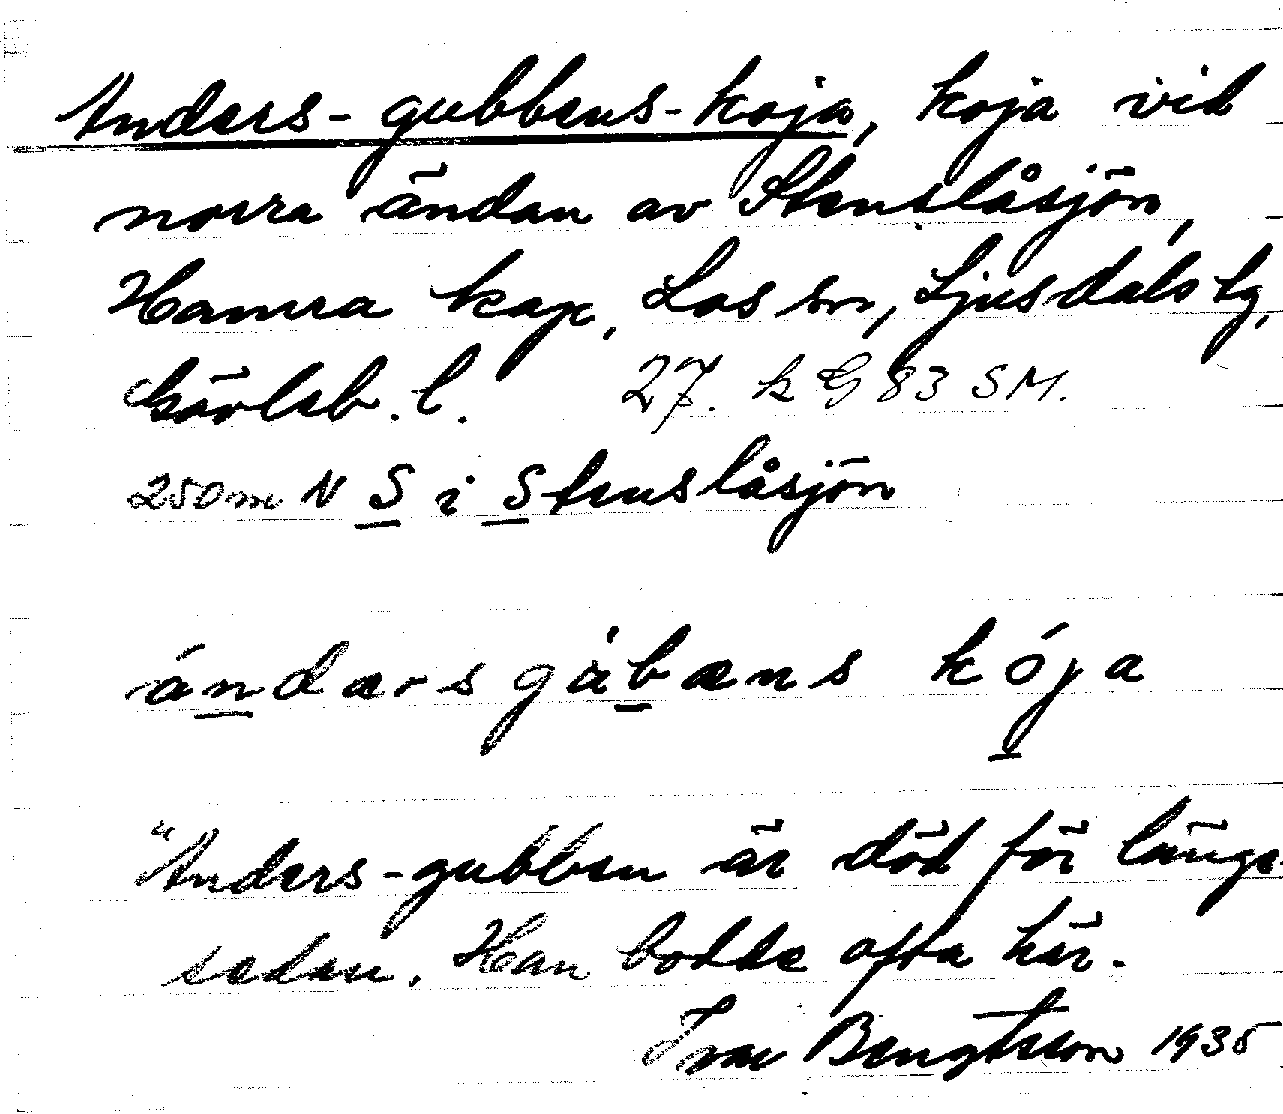 Anders-gubbens-koja, koja vid
norra ändan av Stenslåsjön,
Hamra kap, Los sn, Ljusdals tg,
Gävleb. l. 27. k G 83 SM.
250 m N S i Stenslåsjön
ándærs gàbæns kója
"Anders-gubben är död för länge
sedan. Han bodde ofta här.
Ivar Bengtsson 1935